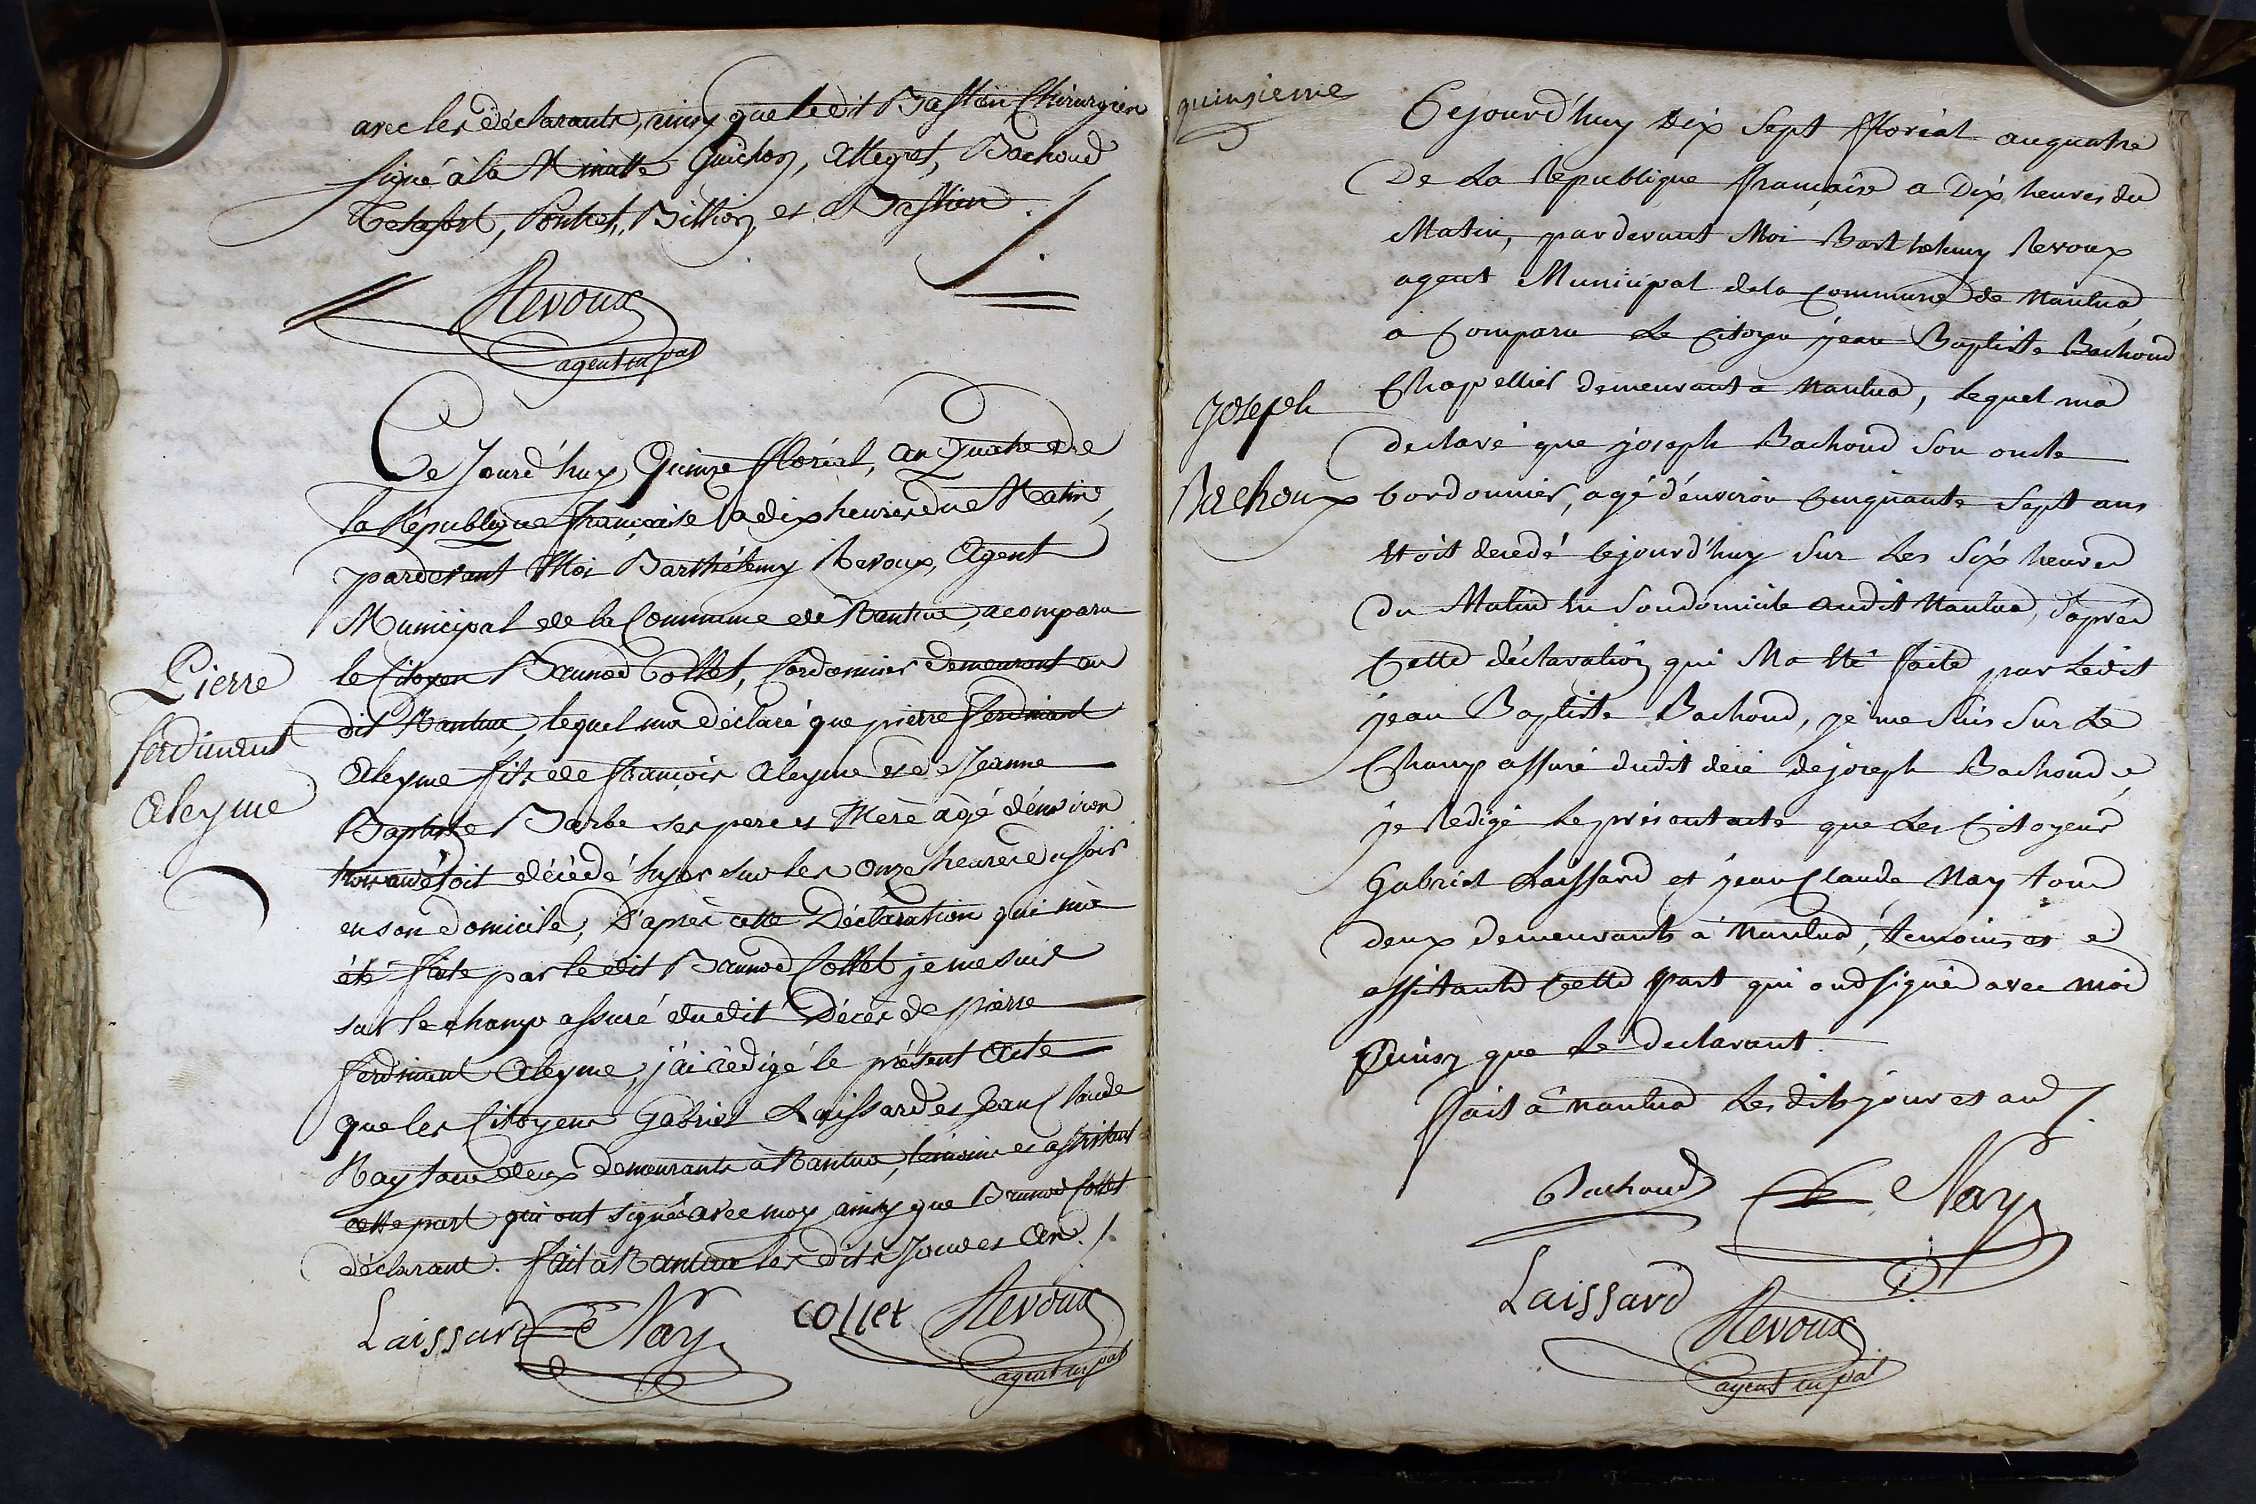 avec les déclarants, ainsy que le dit Bastien Chirurgien
signé à la Minutte Guichon, Allegrat, Bachoud
Pontet, Billion, et Bastien ./.
Revoux
agent mpal
Ce Jourd'huy Quinze floréal, an Quatre de
la République française a dix heures du Matin,
pardevant Moi Barthélemy Revoux, Agent
Municipal de la Commune de Nantua, a comparu
le Citoyen Brunod Collet, Cordonnier demeurant au
dit Nantua, lequel ma déclaré que pierre ferdinant
Pierre
ferdinent
Aleyme
Aleyme fils de françois Aleyme et de Jeanne
Baptiste Barbe ses pere et Mere agé d'environ
trois ans étoit décédé hyer sur les Onze heures du soir
en son domicile; D'après cette Déclaration qui m'a
été faite par le dit Brunod Collet je me suis
sur le champ assuré du dit Décès de pierre
ferdinent Aleyme, j'ai rédigé le présent Acte
que les Citoyens Gabriel Laissard et Jean Claude
Nay tous deux demeurants à Nantua, témoins et assistant
cette part qui ont signés avec moy ainsy que Brunod Collet
déclarant. fait à Nantua les dits Jour et An ./.
Laissard Nay collet Revoux
agent mpal
quinsieme
Cejourd'huy Dix Sept floréal an quatre
De La Republique française a Dix heures du
Matin, pardevant Moi Barthelemy Revoux
agent Municipal de la Commune de Nantua,
a Comparu Le Citoyen jean Baptiste Bachoud
Chapellier demeurant a Nantua, Lequel ma
Joseph
Bachoux
declaré que joseph Bachoud Son oncle
Cordonnier, agé d'environ Cinquante Sept ans
Etoit decedé Cejourd'huy Sur Les Six heures
du Matin En Son domicile audit Nantua, d'après
Cette déclaration qui Ma Eté faite par Ledit
jean Baptiste Bachoud, je me Suis Sur Le
Champ assuré dudit décé de joseph Bachoud, e
je Redigé Le présent acte que Les Citoyens
Gabriel Laissard et jean Claude Nay tous
deux demeurants à Nantua, temoins et e
assitants Cette part qui ond signés avec moi
Ainsy que Le declarant.
fait à Nantua Les dits jour et and ./.
Bachoud Nay
Laissard
Revoux
agent mpal